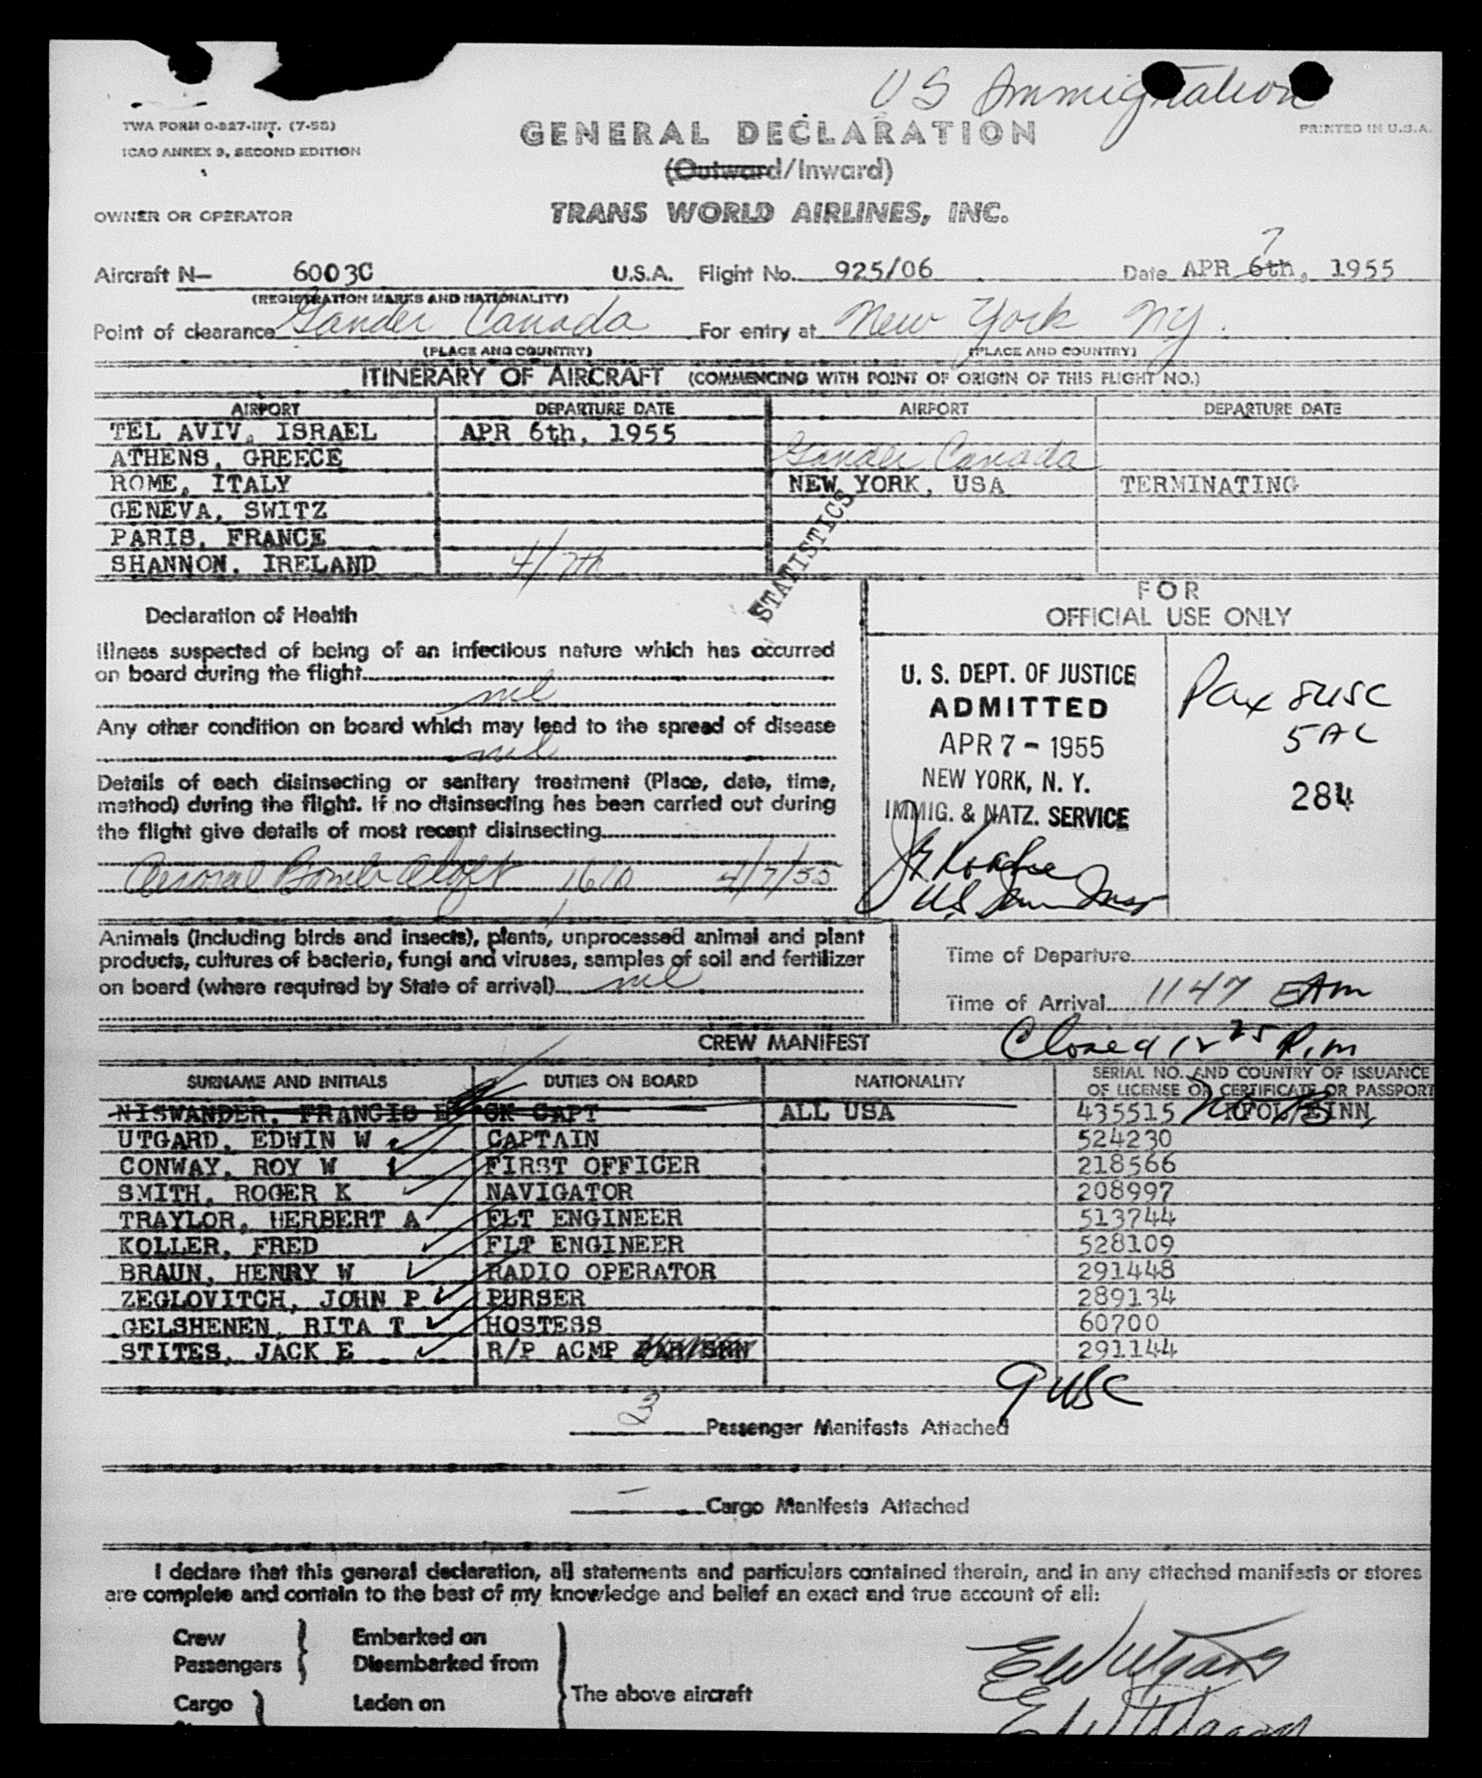 US Immigration
TWA FORM O-827-INT. (7-53)
ICAO ANNEX 9, SECOND EDITION
GENERAL DECLARATION
PRINTED IN U.S.A.
(Outward/Inward)
OWNER OR OPERATOR TRANS WORLD AIRLINES, INC.
7
Aircraft N- 6003C U.S.A. Flight No. 925/06 Date APR 6th, 1955
(REGISTRATION MARKS AND NATIONALITY)
Point of clearance Gander Canada For entry at New York NY.
(PLACE AND COUNTRY) (PLACE AND COUNTRY)
ITINERARY OF AIRCRAFT (COMMENCING WITH POINT OF ORIGIN OF THIS FLIGHT NO.)
AIRPORT DEPARTURE DATE AIRPORT DEPARTURE DATE
TEL AVIV, ISRAEL APR 6th, 1955
ATHENS, GREECE Gander Canada
ROME, ITALY NEW YORK, USA TERMINATING
GENEVA, SWITZ
PARIS, FRANCE
SHANNON, IRELAND 4/7th
STATISTICS
Declaration of Health
Illness suspected of being of an infectious nature which has occurred
on board during the flight
nil
Any other condition on board which may lead to the spread of disease
nil
Details of each disinsecting or sanitary treatment (Place, date, time,
method) during the flight. If no disinsecting has been carried out during
the flight give details of most recent disinsecting
Aerosol Bomb Aloft 1610 4/7/55
FOR
OFFICIAL USE ONLY
U. S. DEPT. OF JUSTICE
ADMITTED
APR 7 - 1955
NEW YORK, N. Y.
IMMIG. & NATZ. SERVICE
US Imm Insp
Pax 8USC
5AC
284
Animals (including birds and insects), plants, unprocessed animal and plant
products, cultures of bacteria, fungi and viruses, samples of soil and fertilizer
on board (where required by State of arrival) nil
Time of Departure
Time of Arrival 1147 EAm
Closed 12 25 P.m
CREW MANIFEST
SURNAME AND INITIALS DUTIES ON BOARD NATIONALITY SERIAL NO. AND COUNTRY OF ISSUANCE
OF LICENSE OR CERTIFICATE OR PASSPORT
NISWANDER, FRANCIS E CK CAPT ALL USA 435515
UTGARD, EDWIN W CAPTAIN 524230
CONWAY, ROY W FIRST OFFICER 218566
SMITH, ROGER K NAVIGATOR 208997
TRAYLOR, HERBERT A FLT ENGINEER 513744
KOLLER, FRED FLT ENGINEER 528109
BRAUN, HENRY W RADIO OPERATOR 291448
ZEGLOVITCH, JOHN P PURSER 289134
GELSHENEN, RITA T HOSTESS 60700
STITES, JACK E R/P ACMP 291144
9 USC
3 Passenger Manifests Attached
- Cargo Manifests Attached
I declare that this general declaration, all statements and particulars contained therein, and in any attached manifests or stores
are complete and contain to the best of my knowledge and belief an exact and true account of all:
Crew Embarked on
Passengers Disembarked from
The above aircraft
Cargo Laden on
EW Utgard
EW Utgard